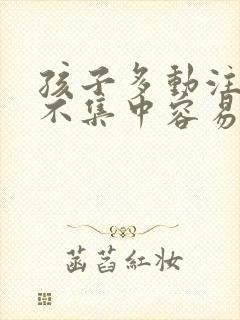 孩子多動注
不集中容易
菡萏紅妝